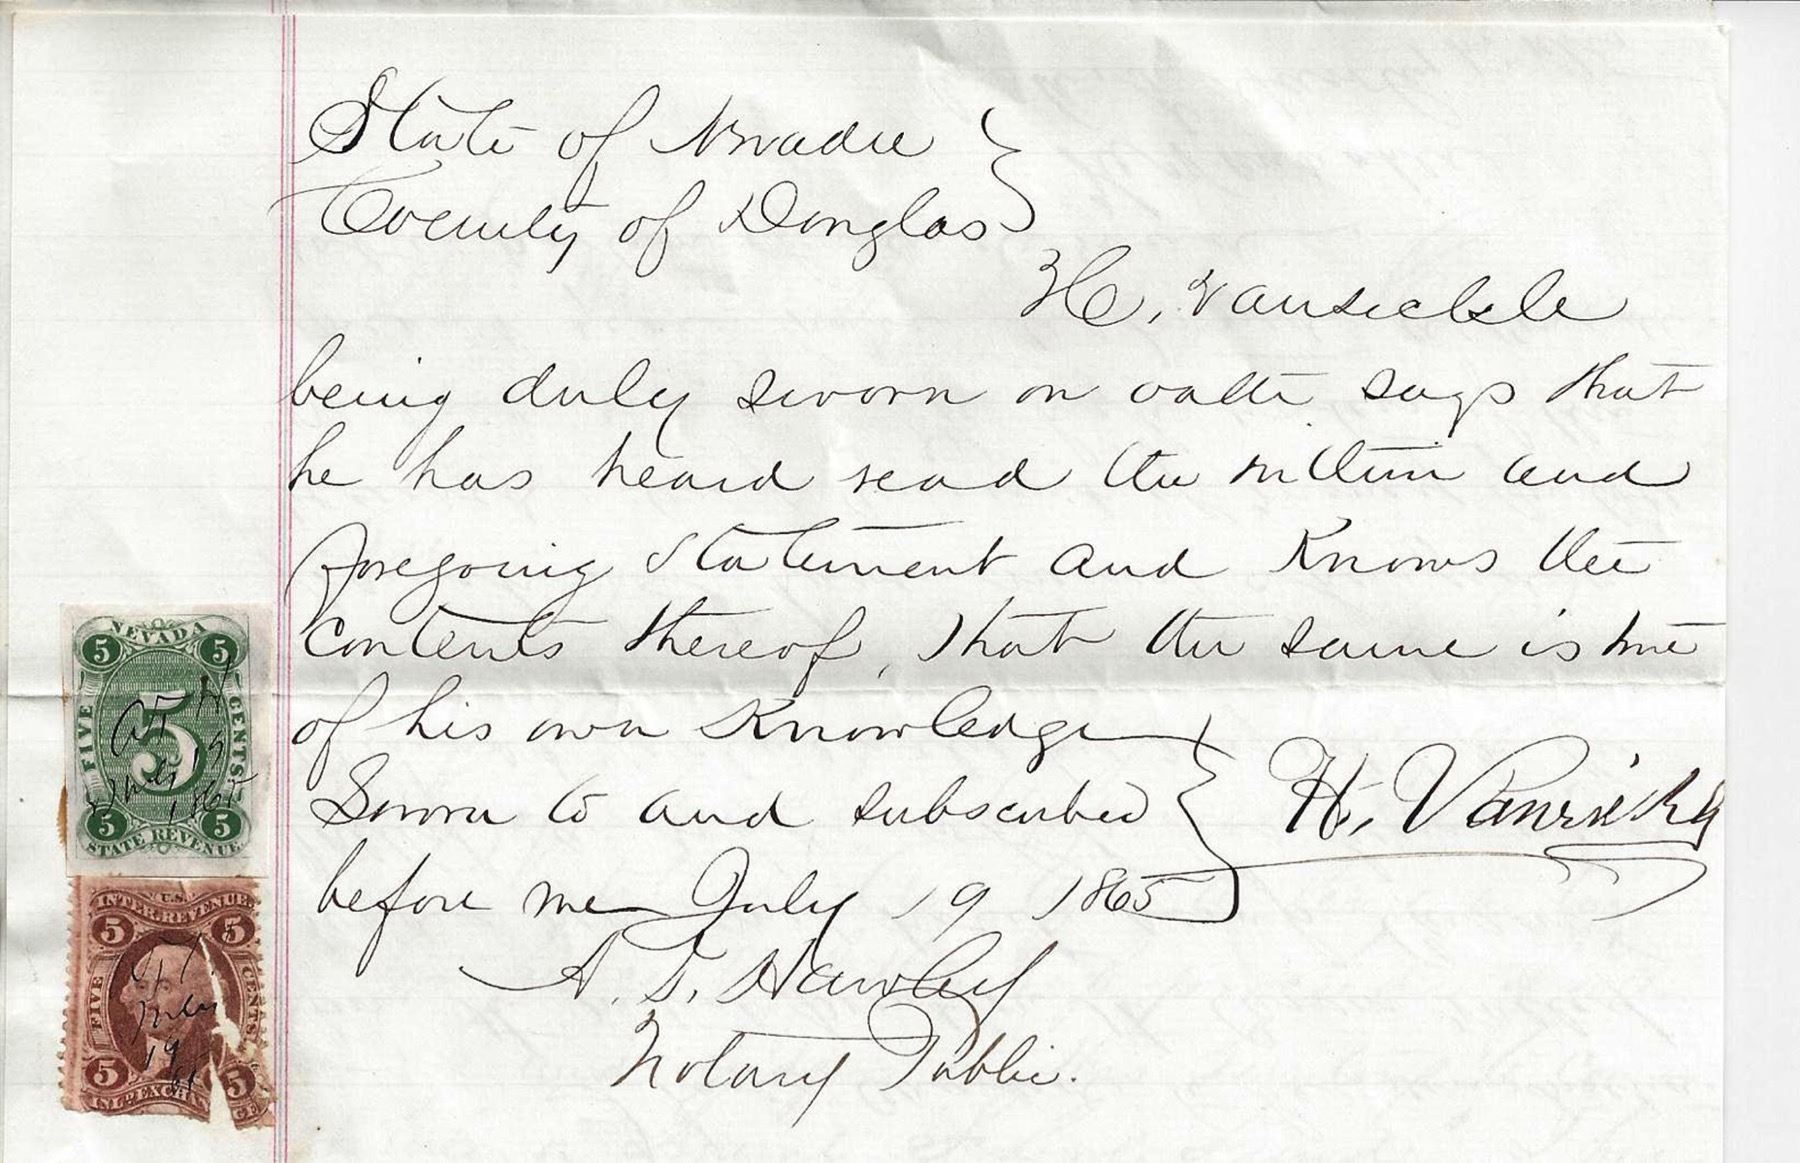 State of Nevada }
County of Douglas }
H. Vansickle
being duly sworn on oath says that
he has heard read the within and
foregoing statement and Knows the
Contents thereof, that the same is true
of his own Knowledge
Sworn to and subscribed } H. Vansickle
before me July 19 1865
A. T. Hawley
Notary Public.
NEVADA
5 5
FIVE 5 CENTS
A T H
July 19
1865
5 5
STATE REVENUE
U.S.
INTER. REVENUE
5 5
FIVE CENTS
July
19
65
5 5
INL'D EXCHANGE